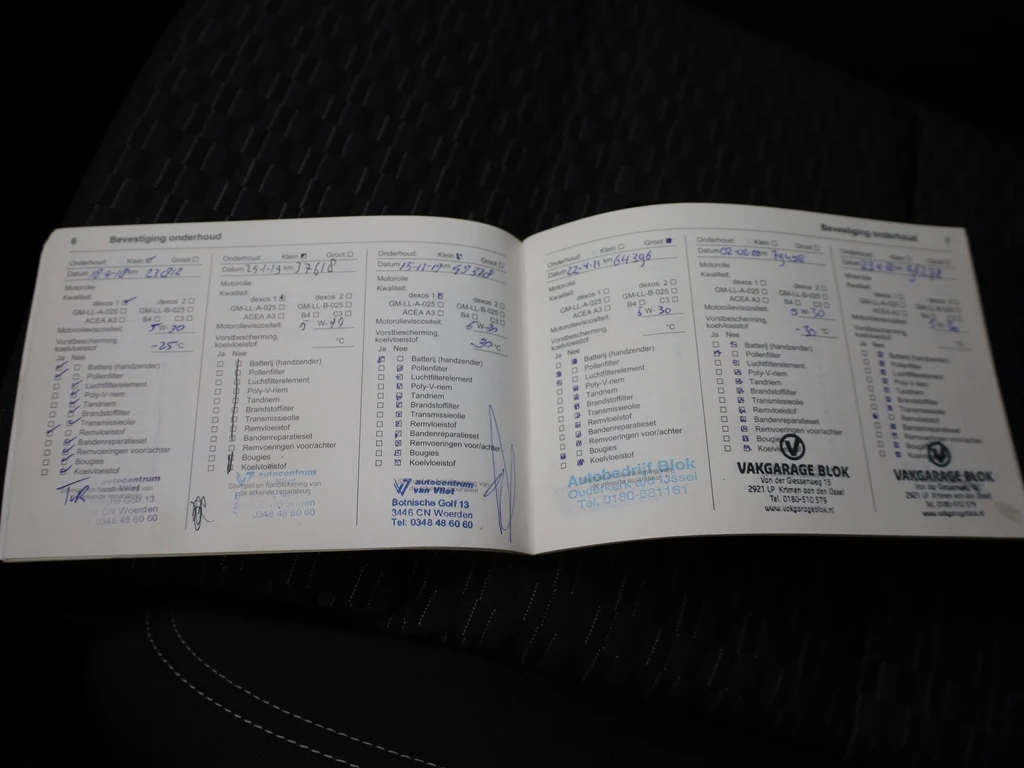 6 Bevestiging onderhoud
Onderhoud: Klein Groot
Datum km
Motorolie
Kwaliteit:
dexos 1 dexos 2
GM-LL-A-025 GM-LL-B-025
ACEA A3 B4 C3
Motorolieviscositeit:
5 W-30
Vorstbescherming,
koelvloeistof -25 °C
Ja Nee
Batterij (handzender)
Pollenfilter
Luchtfilterelement
Poly-V-riem
Tandriem
Brandstoffilter
Transmissieolie
Remvloeistof
Bandenreparatieset
Remvoeringen voor/achter
Bougies
Koelvloeistof
autocentrum
CN Woerden
0348 48 60 60
Onderhoud: Klein Groot
Datum km 17618
Motorolie
Kwaliteit:
dexos 1 dexos 2
GM-LL-A-025 GM-LL-B-025
ACEA A3 B4 C3
Motorolieviscositeit:
Vorstbescherming,
koelvloeistof °C
Ja Nee
Batterij (handzender)
Pollenfilter
Luchtfilterelement
Poly-V-riem
Tandriem
Brandstoffilter
Transmissieolie
Remvloeistof
Bandenreparatieset
Remvoeringen voor/achter
Bougies
Koelvloeistof
autocentrum
Stempel en handtekening van
de erkende reparateur
CN Woerden
0348 48 60 60
Onderhoud: Klein Groot
Datum km
Motorolie
Kwaliteit:
dexos 1 dexos 2
GM-LL-A-025 GM-LL-B-025
ACEA A3 B4 C3
Motorolieviscositeit:
5 W-30
Vorstbescherming,
koelvloeistof -30 °C
Ja Nee
Batterij (handzender)
Pollenfilter
Luchtfilterelement
Poly-V-riem
Tandriem
Brandstoffilter
Transmissieolie
Remvloeistof
Bandenreparatieset
Remvoeringen voor/achter
Bougies
Koelvloeistof
autocentrum
van Vliet
Botnische Golf 13
3446 CN Woerden
Tel: 0348 48 60 60
Bevestiging onderhoud 7
Onderhoud: Klein Groot
Datum 22-4-21 km 64396
Motorolie
Kwaliteit:
dexos 1 dexos 2
GM-LL-A-025 GM-LL-B-025
ACEA A3 B4 C3
Motorolieviscositeit:
5 W-30
Vorstbescherming,
koelvloeistof °C
Ja Nee
Batterij (handzender)
Pollenfilter
Luchtfilterelement
Poly-V-riem
Tandriem
Brandstoffilter
Transmissieolie
Remvloeistof
Bandenreparatieset
Remvoeringen voor/achter
Bougies
Koelvloeistof
Autobedrijf Blok
Ouderkerk a/d IJssel
Tel. 0180-681161
Onderhoud: Klein Groot
Datum km
Motorolie
Kwaliteit:
dexos 1 dexos 2
GM-LL-A-025 GM-LL-B-025
ACEA A3 B4 C3
Motorolieviscositeit:
5 W-30
Vorstbescherming,
koelvloeistof -30 °C
Ja Nee
Batterij (handzender)
Pollenfilter
Luchtfilterelement
Poly-V-riem
Tandriem
Brandstoffilter
Transmissieolie
Remvloeistof
Bandenreparatieset
Remvoeringen voor/achter
Bougies
VAKGARAGE BLOK
Van der Giessenweg 13
2921 LP Krimpen aan den IJssel
Tel. 0180-510 579
www.vakgarageblok.nl
Onderhoud: Klein Groot
Datum km
Motorolie
Kwaliteit:
dexos 1 dexos 2
GM-LL-A-025 GM-LL-B-025
ACEA A3 B4 C3
Motorolieviscositeit:
Vorstbescherming,
koelvloeistof °C
Ja Nee
Batterij (handzender)
Pollenfilter
Luchtfilterelement
Poly-V-riem
Tandriem
Brandstoffilter
Transmissieolie
Remvloeistof
Bandenreparatieset
Remvoeringen voor/achter
Bougies
VAKGARAGE BLOK
2921 LP Krimpen aan den IJssel
Tel. 0180-510 579
www.vakgarageblok.nl